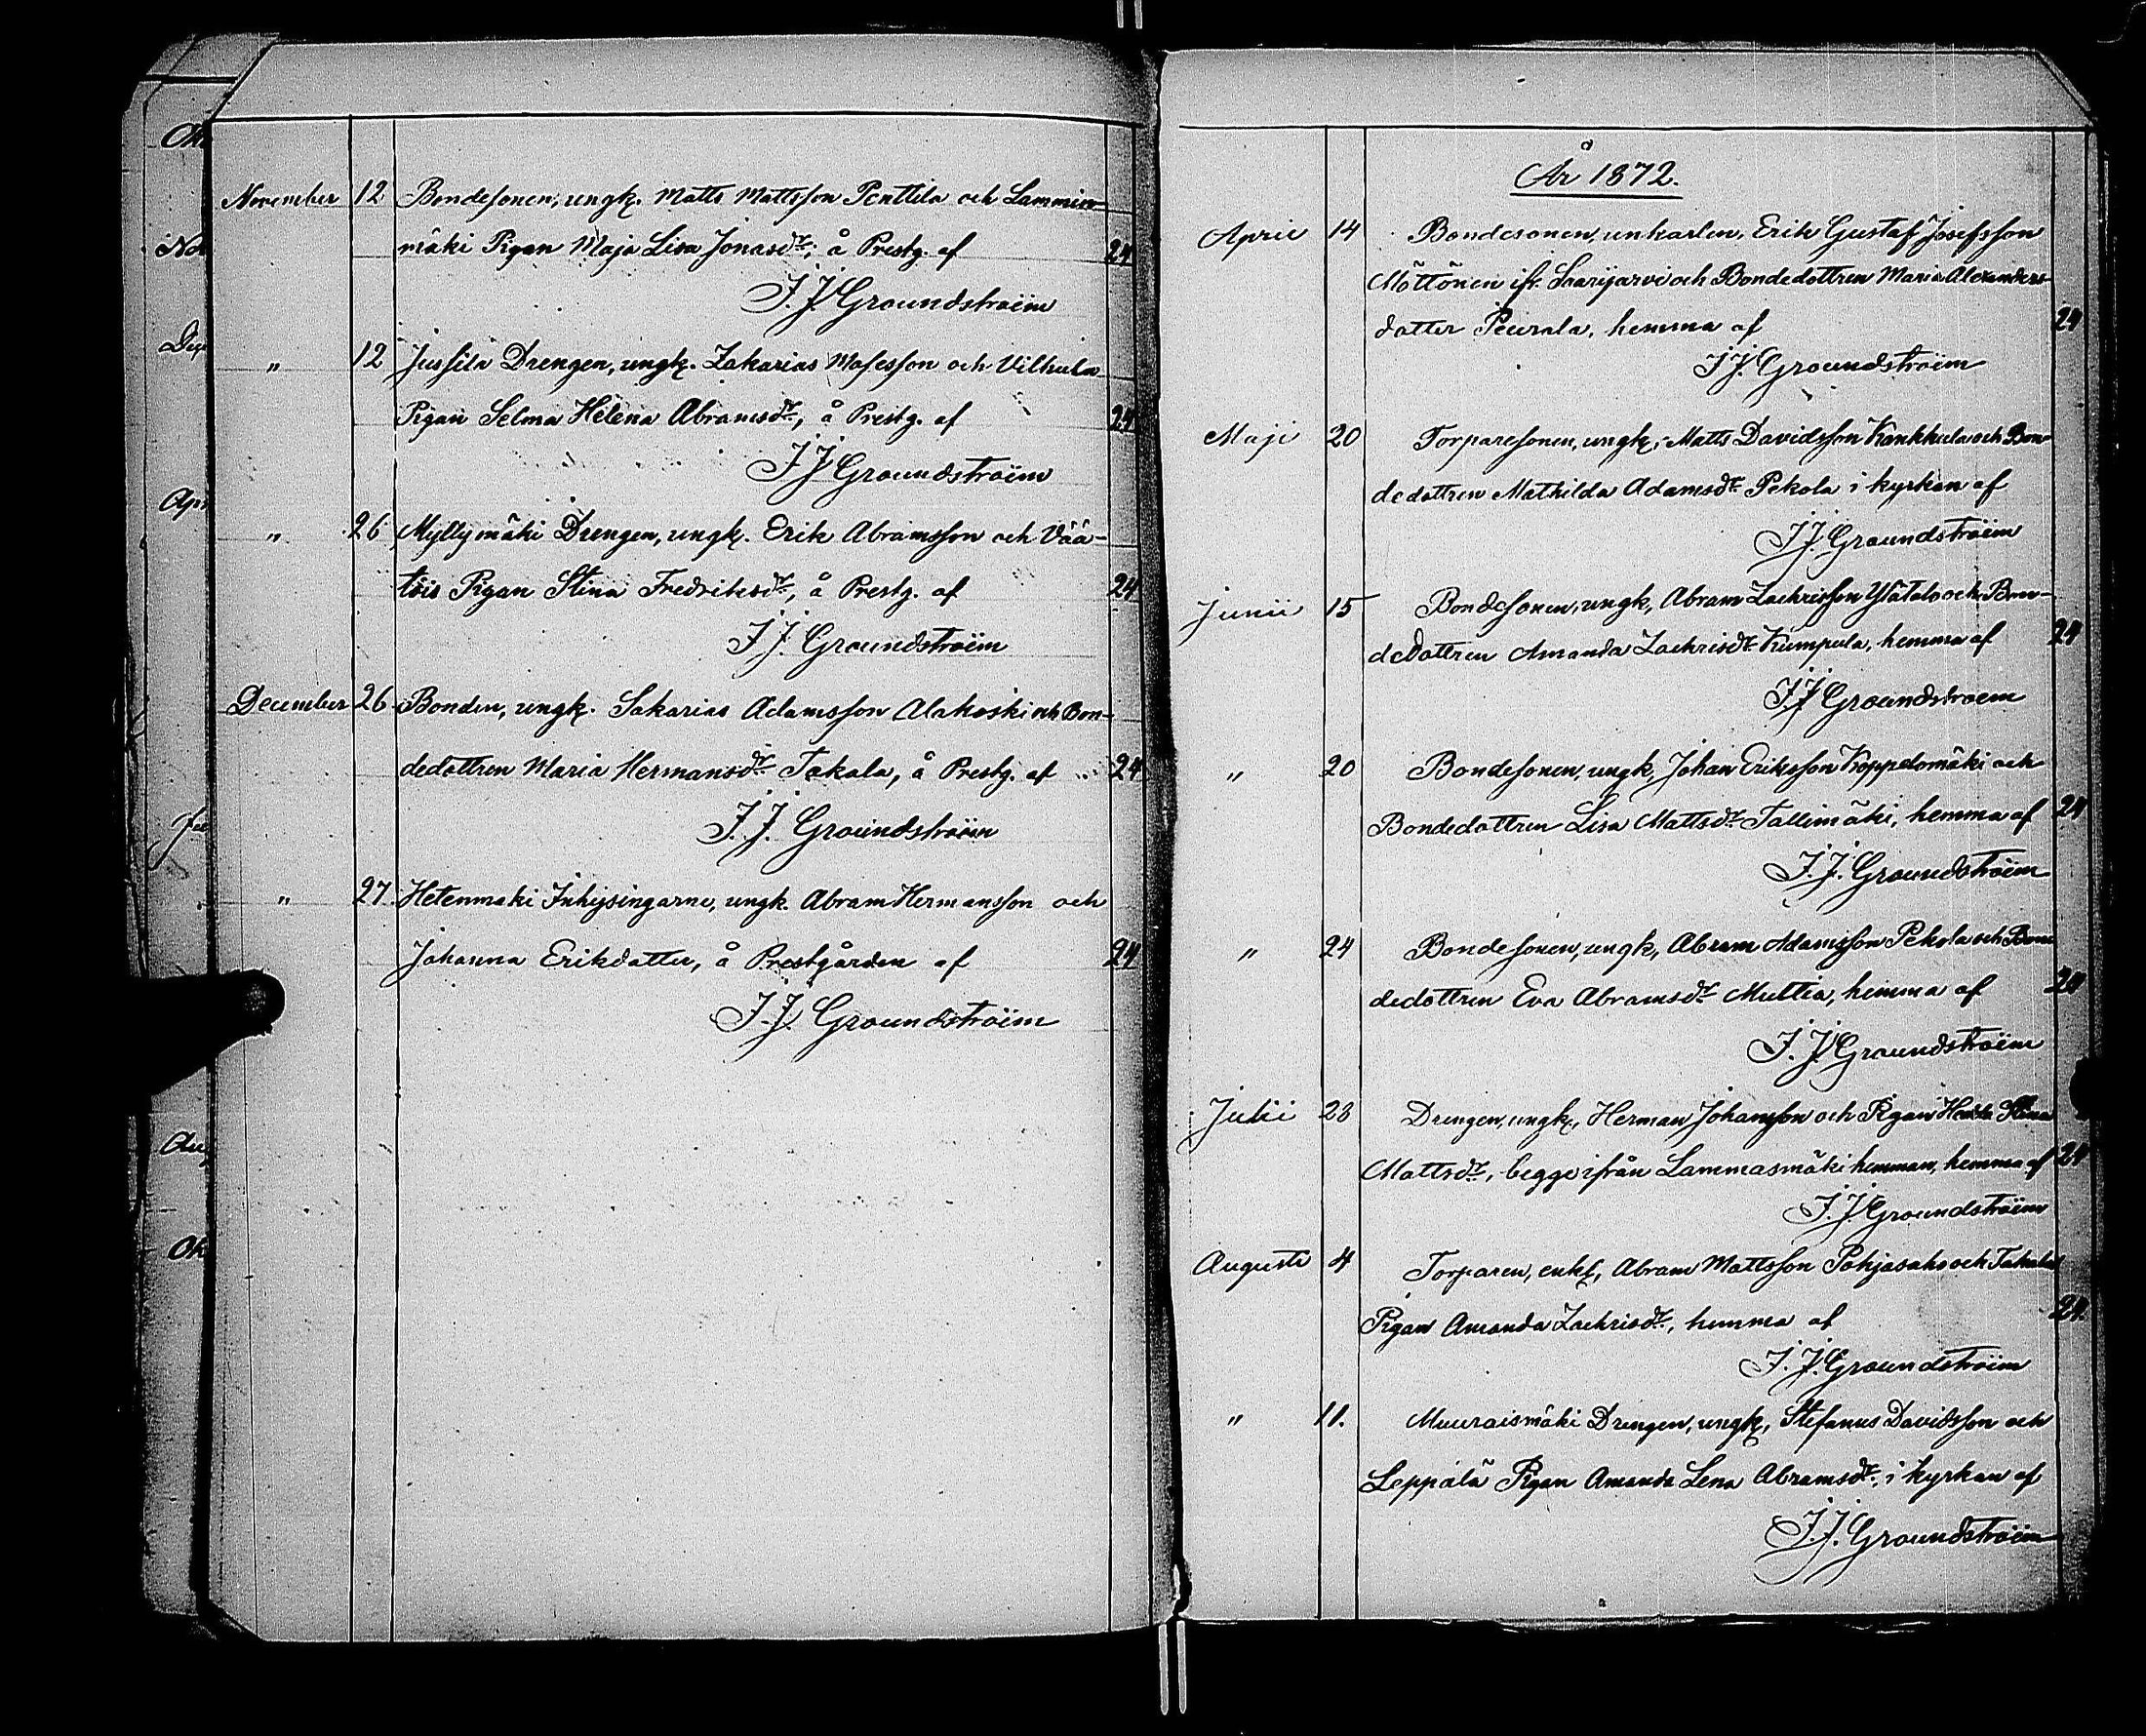 November 12 Bondesonen, ungk. Matts Mattsson Penttila och Lammin-
mäki Pigan Maja Lisa Jonasdr, å Prestg. af 24
J. J. Groundstroëm
" 12 Jussila Drengen, ungk. Zakarias Mosesson och Vilkula
Pigan Selma Helena Abramsdr, å Prestg. af 24
J. J. Groundstroëm
" 26 Myllymäki Drengen, ungk. Erik Abramsson och Vää-
täis Pigan Stina Fredriksdr, å Prestg. af 24
J. J. Groundstroëm
December 26 Bonden, ungk. Sakarias Adamsson Alakoski och Bon-
dedottren Maria Hermansdr Takala, å Prestg. af 24
J. J. Groundstroëm
" 27. Hetenmäki Inhysingarne, ungk. Abram Hermansson och
Johanna Erikdatter, å Prestgården af 24
J. J. Groundstroëm
År 1872.
April 14 Bondesonen, unkarlen, Erik Gustaf Josefsson
Möttönen ifr. Saarijarvi och Bondedottren Maria Alexanders-
datter Peurala, hemma af 24
J. J. Groundstroëm
Maji 20 Torparesonen, ungk, Matts Davidsson Kankkula och Bon
dedottren Mathilda Adamsdr Pekola i kyrkan af
J. J. Groundstroëm
Junii 15 Bondesonen, ungk, Abram Zachrisson Ylätalo och Bon-
dedottren Amanda Zachrisdr Kumpula, hemma af 24
J. J. Groundstroem
" 20 Bondesonen, ungk, Johan Eriksson Koppelomäki och
Bondedottren Lisa Mattsdr Tallimäki, hemma af 24
J. J. Groundstroëm
" 24 Bondesonen, ungk, Abram Adamsson Pekola och Bon
dedottren Eva Abramsdr Muttia, hemma af 24
J. J. Groundstroëm
Julii 28 Drengen, ungk, Herman Johansson och Pigan Hedda Stina
Mattsdr, begge ifrån Lammasmäki hemman, hemma af 24
J. J. Groundstroëm
Augusti 4 Torparen, enkl, Abram Mattsson Pohjasaho och Takala
Pigan Amanda Zachrisdr, hemma af 24.
J. J. Groundstroëm
" 11. Muuraismäki Drengen, ungk, Stefanus Davidsson och
Leppälä Pigan Amanda Lena Abramsdr, i kyrkan af
J. J. Groundstroëm